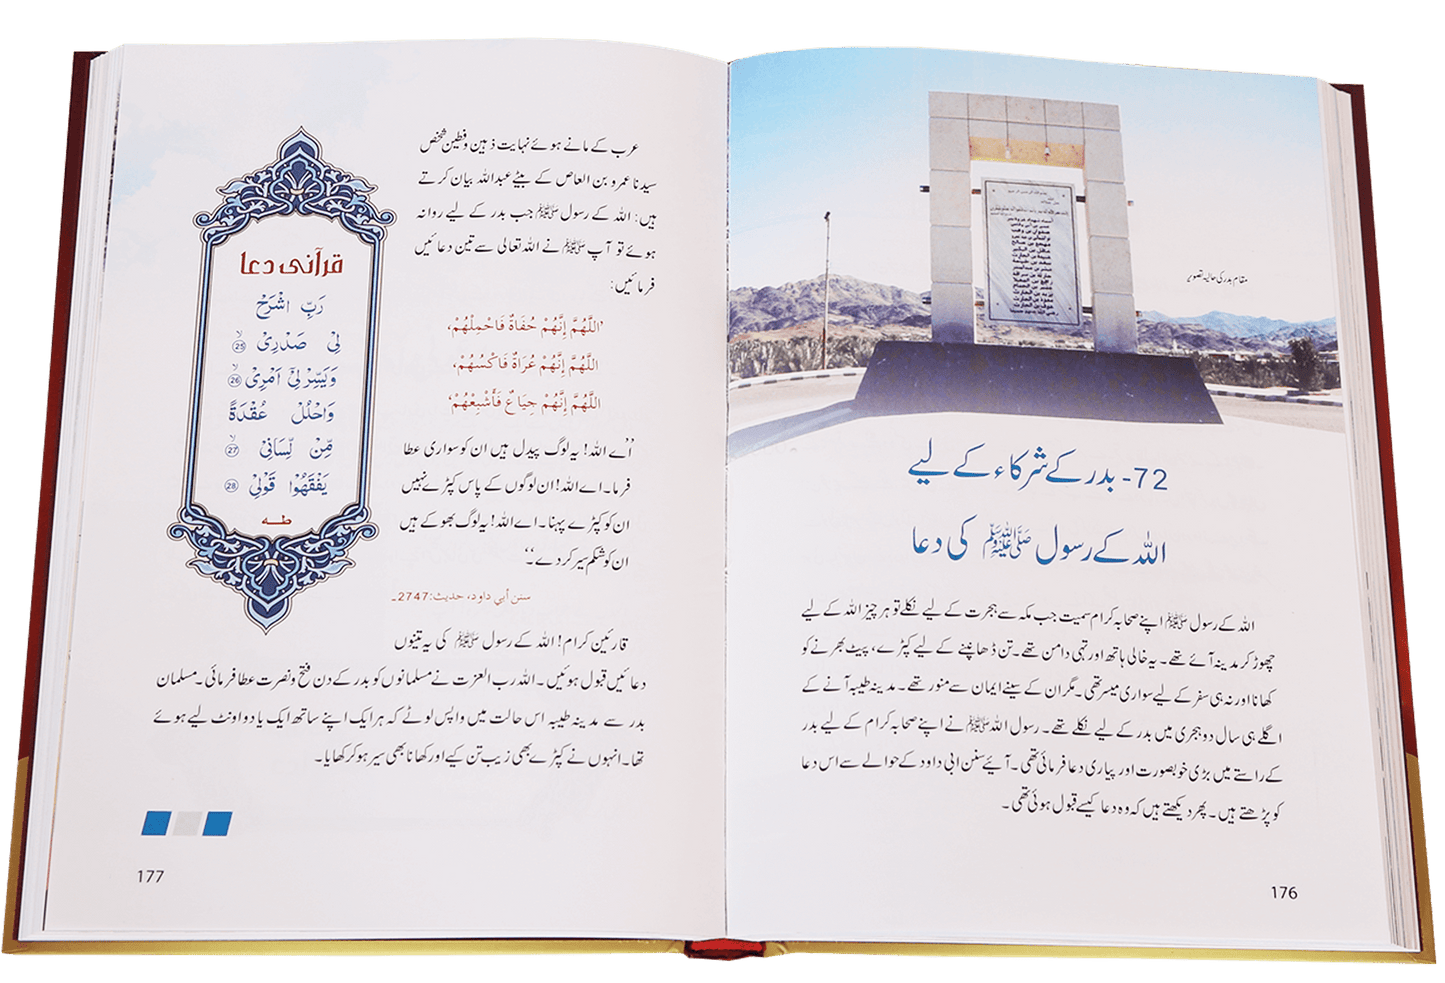 مقام بدر کی حالیہ تصویر
72- بدر کے شرکاء کے لیے
اللہ کے رسول ﷺ کی دعا
اللہ کے رسول ﷺ اپنے صحابہ کرام سمیت جب مکہ سے ہجرت کے لیے نکلے تو ہر چیز اللہ کے لیے
چھوڑ کر مدینہ آئے تھے۔ یہ خالی ہاتھ اور تہی دامن تھے۔ تن ڈھانپنے کے لیے کپڑے، پیٹ بھرنے کو
کھانا اور نہ ہی سفر کے لیے سواری میسر تھی۔ مگر ان کے سینے ایمان سے منور تھے۔ مدینہ طیبہ آنے کے
اگلے ہی سال دو ہجری میں بدر کے لیے نکلے تھے۔ رسول اللہ ﷺ نے اپنے صحابہ کرام کے لیے بدر
کے راستے میں بڑی خوبصورت اور پیاری دعا فرمائی تھی۔ آیئے سنن ابی داود کے حوالے سے اس دعا
کو پڑھتے ہیں۔ پھر دیکھتے ہیں کہ وہ دعا کیسے قبول ہوئی تھی۔
176
عرب کے مانے ہوئے نہایت ذہین و فطین شخص
سیدنا عمرو بن العاص کے بیٹے عبداللہ بیان کرتے
ہیں: اللہ کے رسول ﷺ جب بدر کے لیے روانہ
ہوئے تو آپ ﷺ نے اللہ تعالی سے تین دعائیں
فرمائیں:
'اللَّهُمَّ إِنَّهُمْ حُفَاةٌ فَاحْمِلْهُمْ،
اللَّهُمَّ إِنَّهُمْ عُرَاةٌ فَاكْسُهُمْ،
اللَّهُمَّ إِنَّهُمْ جِيَاعٌ فَأَشْبِعْهُمْ'
’’اے اللہ! یہ لوگ پیدل ہیں ان کو سواری عطا
فرما۔ اے اللہ! ان لوگوں کے پاس کپڑے نہیں
ان کو کپڑے پہنا۔ اے اللہ! یہ لوگ بھوکے ہیں
ان کو شکم سیر کر دے۔‘‘
سنن أبي داود، حديث:2747۔
قارئین کرام! اللہ کے رسول ﷺ کی یہ تینوں
دعائیں قبول ہوئیں۔ اللہ رب العزت نے مسلمانوں کو بدر کے دن فتح و نصرت عطا فرمائی۔ مسلمان
بدر سے مدینہ طیبہ اس حالت میں واپس لوٹے کہ ہر ایک اپنے ساتھ ایک یا دو اونٹ لیے ہوئے
تھا۔ انہوں نے کپڑے بھی زیب تن کیے اور کھانا بھی سیر ہو کر کھایا۔
قرآنی دعا
رَبِّ اشْرَحْ
لِیْ صَدْرِیْ ۙ 25
وَيَسِّرْ لِیْٓ اَمْرِیْ ۙ 26
وَاحْلُلْ عُقْدَةً
مِّنْ لِّسَانِیْ ۙ 27
يَفْقَهُوْا قَوْلِیْ 28
طه
177